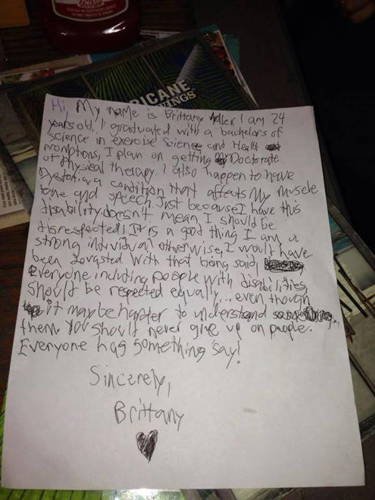 RICANE
INGS
Hi, My name is Brittany I am 24
years old. I graduated with a bachelors of
science in exercise science and Health
promotions, I plan on getting Doctorate
of Physical therapy. I also happen to have
Dystonia, a condition that affects My muscle
tone and speech. Just because I have this
disability doesn't mean I should be
disrespected! It is a good thing I am a
strong individual otherwise, I would have
been devasted with that being said,
everyone including people with disabilities
should be respected equally... even though
it may be harder to understand
them you should never give up on people.
Everyone has something say!
Sincerely,
Brittany